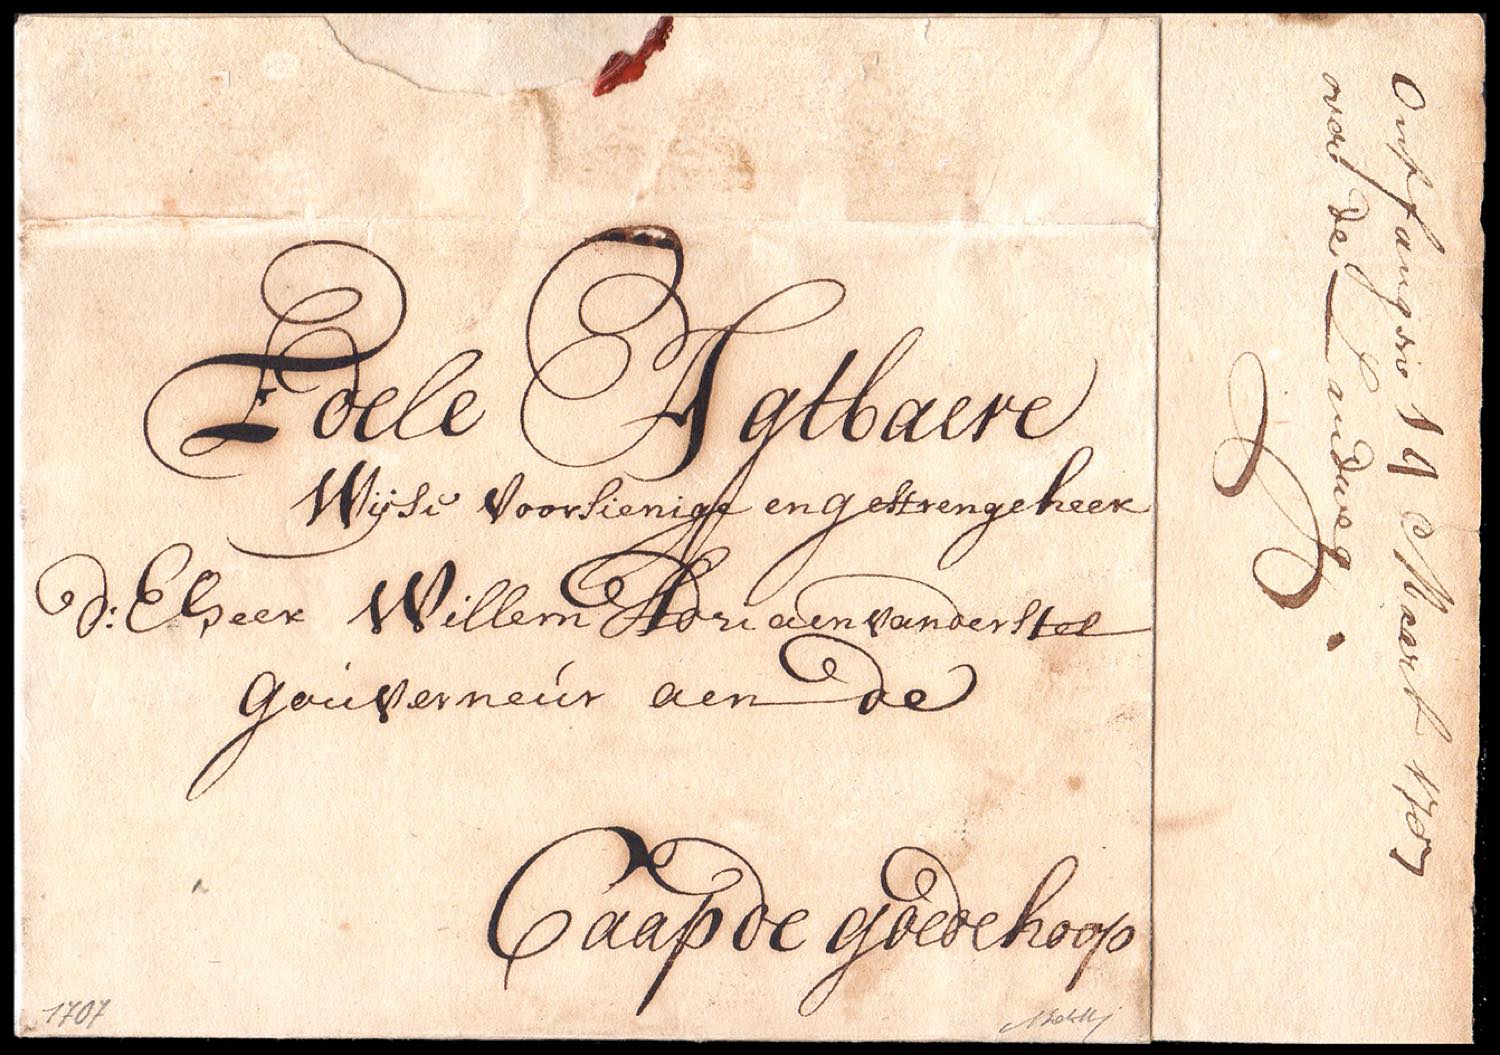 Edele Agtbaere
Wijse voorsienige en gestrenge heer
d: E Heer Willem Adriaen van der Stel
gouverneúr aen de
Caap de goede hoop
1707
Ontfangen 14 Maart 1707
voor de Landweg